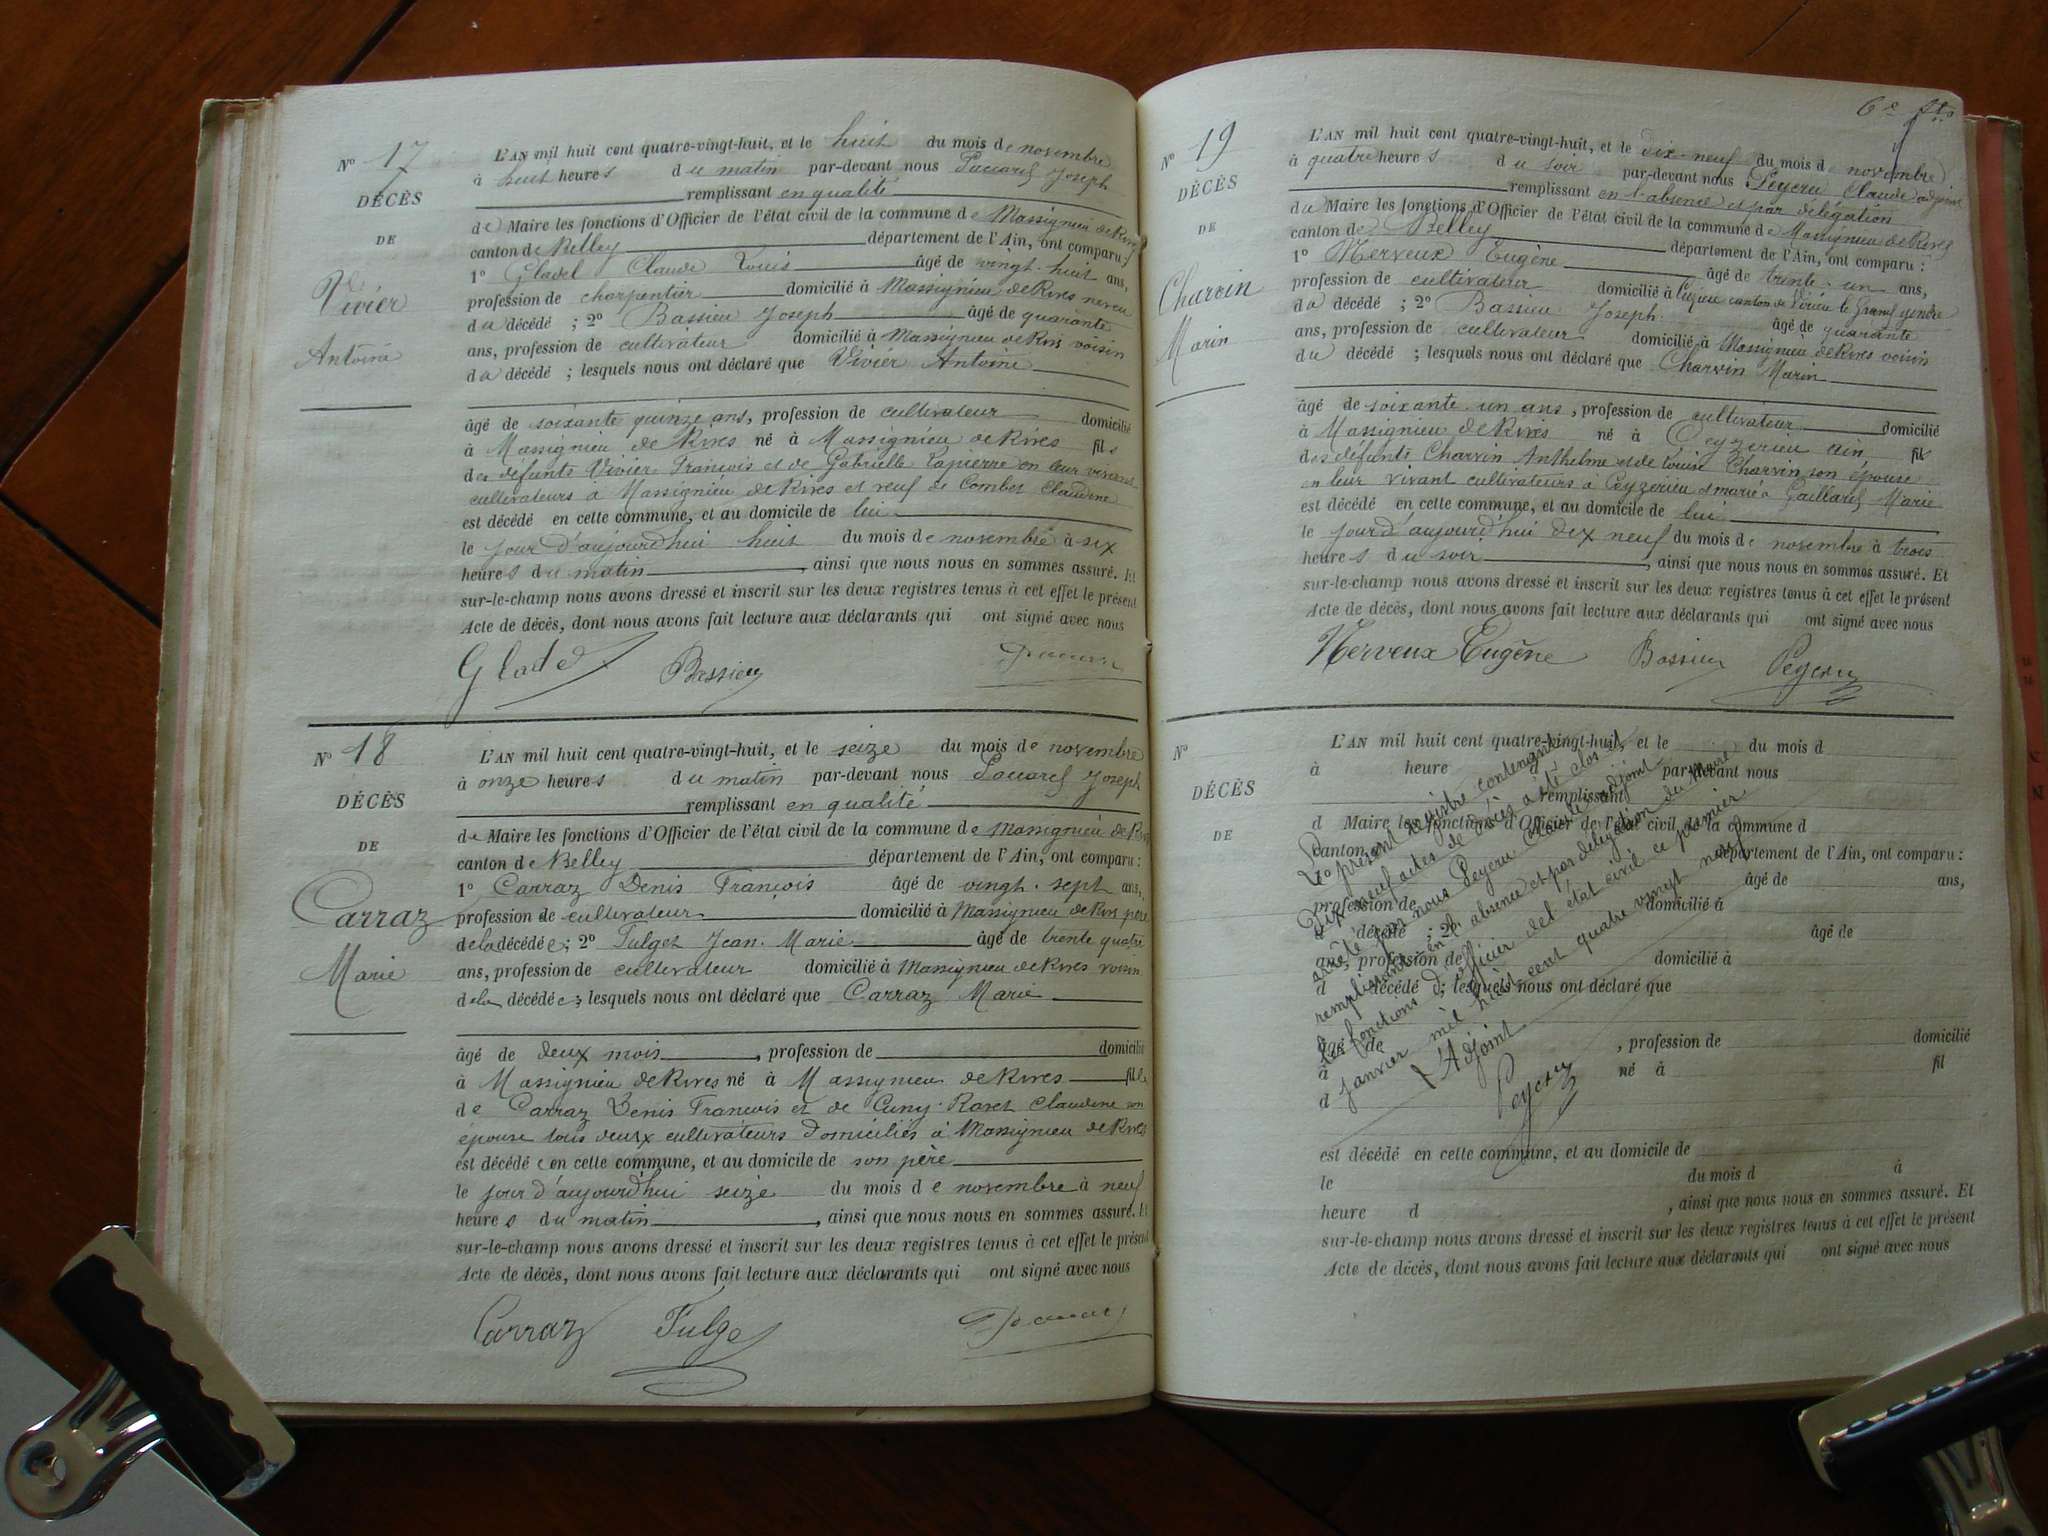 N° 17
DÉCÈS
DE
Vivier
Antoine
L'AN mil huit cent quatre-vingt-huit, et le huit du mois de novembre
à huit heures du matin par-devant nous Joseph
remplissant en qualité
de Maire les fonctions d'Officier de l'état civil de la commune de Massignieu de Rives
canton de Belley département de l'Ain, ont comparu :
1° Gladel Claude Louis âgé de vingt-huit ans,
profession de charpentier domicilié à Massignieu de Rives neveu
du décédé ; 2° Bassieu Joseph âgé de quarante
ans, profession de cultivateur domicilié à Massignieu de Rives voisin
du décédé ; lesquels nous ont déclaré que Vivier Antoine
âgé de soixante quinze ans, profession de cultivateur domicilié
à Massignieu de Rives né à Massignieu de Rives fils
des défunts Vivier François et de Gabrielle Lapierre en leur vivant
cultivateurs à Massignieu de Rives et veuf de Combet Claudine
est décédé en cette commune, et au domicile de lui
le jour d'aujourd'hui huit du mois de novembre à six
heures du matin, ainsi que nous nous en sommes assuré. Et
sur-le-champ nous avons dressé et inscrit sur les deux registres tenus à cet effet le présent
Acte de décès, dont nous avons fait lecture aux déclarants qui ont signé avec nous
Gladel Bassieu
N° 18
DÉCÈS
DE
Carraz
Marie
L'AN mil huit cent quatre-vingt-huit, et le seize du mois de novembre
à onze heures du matin par-devant nous Joseph
remplissant en qualité
de Maire les fonctions d'Officier de l'état civil de la commune de Massignieu de Rives
canton de Belley département de l'Ain, ont comparu :
1° Carraz Denis François âgé de vingt-sept ans,
profession de cultivateur domicilié à Massignieu de Rives père
de la décédée ; 2° Jean-Marie âgé de trente quatre
ans, profession de cultivateur domicilié à Massignieu de Rives voisin
de la décédée ; lesquels nous ont déclaré que Carraz Marie
âgé de deux mois, profession de domicilié
à Massignieu de Rives né à Massignieu de Rives fille
de Carraz Denis François et de Claudine son
épouse tous deux cultivateurs domiciliés à Massignieu de Rives
est décédée en cette commune, et au domicile de son père
le jour d'aujourd'hui seize du mois de novembre à neuf
heures du matin, ainsi que nous nous en sommes assuré. Et
sur-le-champ nous avons dressé et inscrit sur les deux registres tenus à cet effet le présent
Acte de décès, dont nous avons fait lecture aux déclarants qui ont signé avec nous
Carraz
6e
N° 19
DÉCÈS
DE
Charvin
Marin
L'AN mil huit cent quatre-vingt-huit, et le dix-neuf du mois de novembre
à quatre heures du soir par-devant nous Peyeru Claude adjoint
remplissant en l'absence et par délégation
du Maire les fonctions d'Officier de l'état civil de la commune de Massignieu de Rives
canton de Belley département de l'Ain, ont comparu :
1° Nerveux Eugène âgé de trente-un ans,
profession de cultivateur domicilié à canton de Virieu le Grand gendre
du décédé ; 2° Bassieu Joseph âgé de quarante
ans, profession de cultivateur domicilié à Massignieu de Rives voisin
du décédé ; lesquels nous ont déclaré que Charvin Marin
âgé de soixante-un ans, profession de cultivateur domicilié
à Massignieu de Rives né à Ceyzerieu ain fils
des défunts Charvin Anthelme et de Louise Charvin son épouse
en leur vivant cultivateurs à Ceyzerieu et marié à Gaillard Marie
est décédé en cette commune, et au domicile de lui
le jour d'aujourd'hui dix neuf du mois de novembre à trois
heures du soir, ainsi que nous nous en sommes assuré. Et
sur-le-champ nous avons dressé et inscrit sur les deux registres tenus à cet effet le présent
Acte de décès, dont nous avons fait lecture aux déclarants qui ont signé avec nous
Nerveux Eugène Bassieu Peyeru
N°
DÉCÈS
DE
L'AN mil huit cent quatre-vingt-huit, et le du mois d
à heure par-devant nous
remplissant
d Maire les fonctions d'Officier de l'état civil de la commune d
canton département de l'Ain, ont comparu :
1° âgé de ans,
profession de domicilié à
d décédé ; 2° âgé de
ans, profession de domicilié à
d décédé ; lesquels nous ont déclaré que
âgé de , profession de domicilié
à né à fil
d
est décédé en cette commune, et au domicile de
le du mois d à
heure d , ainsi que nous nous en sommes assuré. Et
sur-le-champ nous avons dressé et inscrit sur les deux registres tenus à cet effet le présent
Acte de décès, dont nous avons fait lecture aux déclarants qui ont signé avec nous
Le présent registre contenant
dix neuf actes de décès a été clos et
arrêté par nous Peyeru Claude adjoint
remplissant en l'absence et par délégation du Maire
les fonctions d'officier de l'état civil ce premier
janvier mil huit cent quatre vingt neuf
L'Adjoint
Peyeru